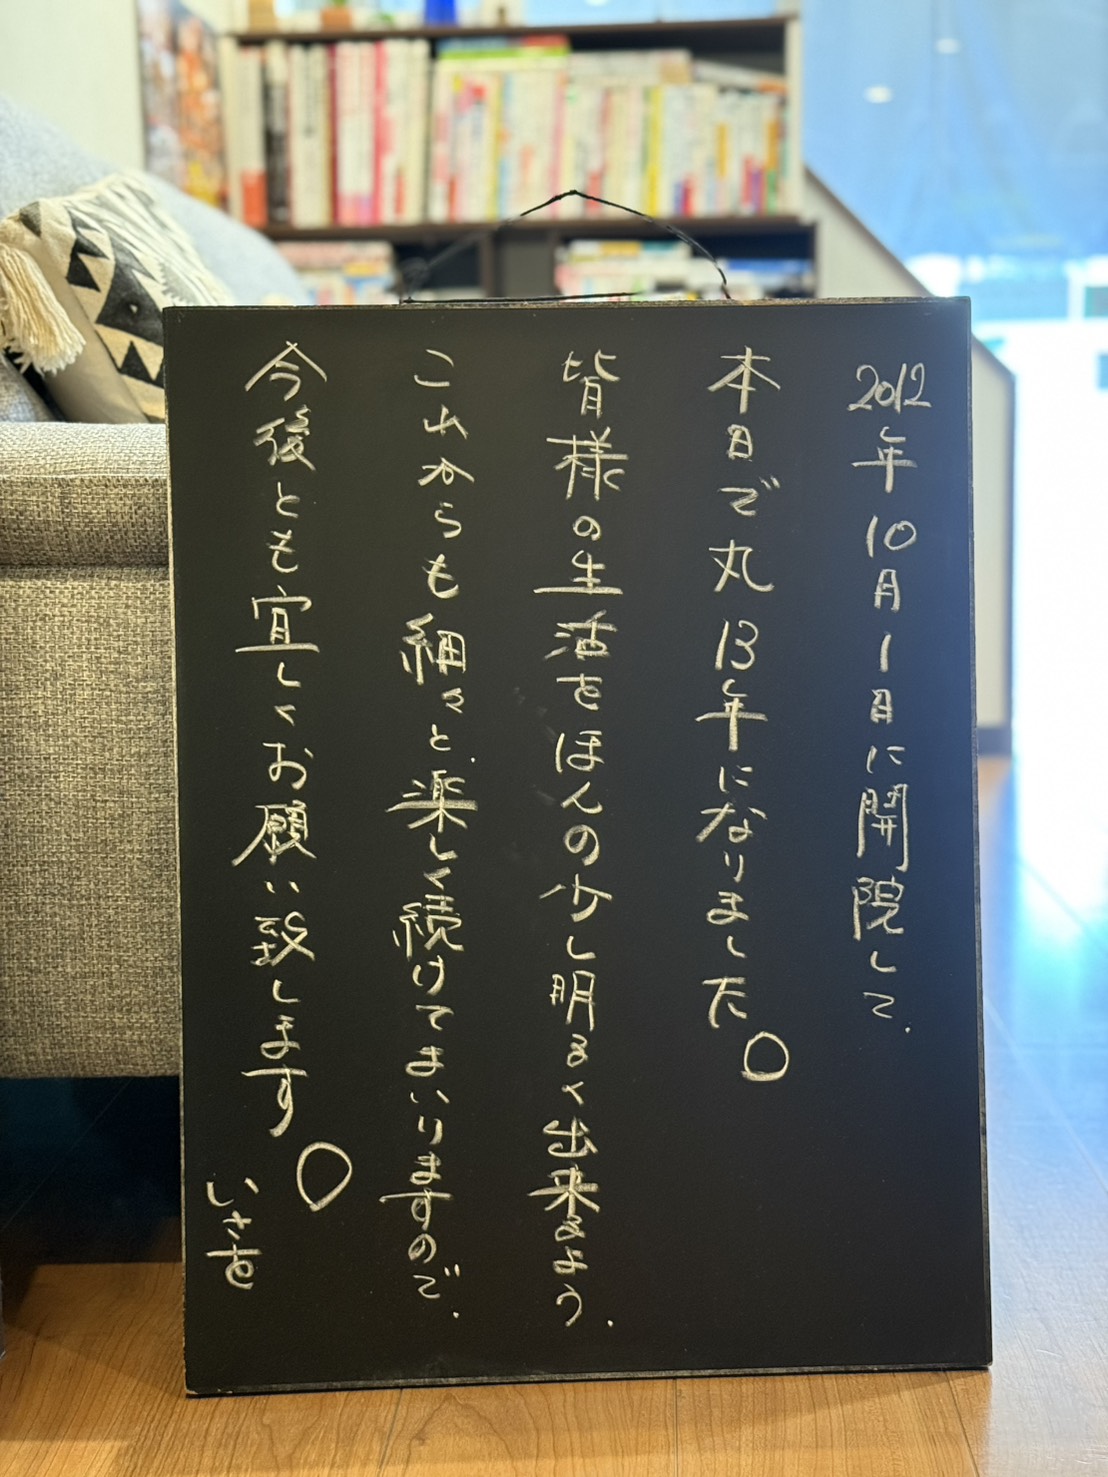 2012年10月1日に開院して、
本日で丸13年になりました。
皆様の生活をほんの少し明るく出来るよう、
これからも細々と、楽しく続けてまいりますので、
今後とも宜しくお願い致します。
いさを